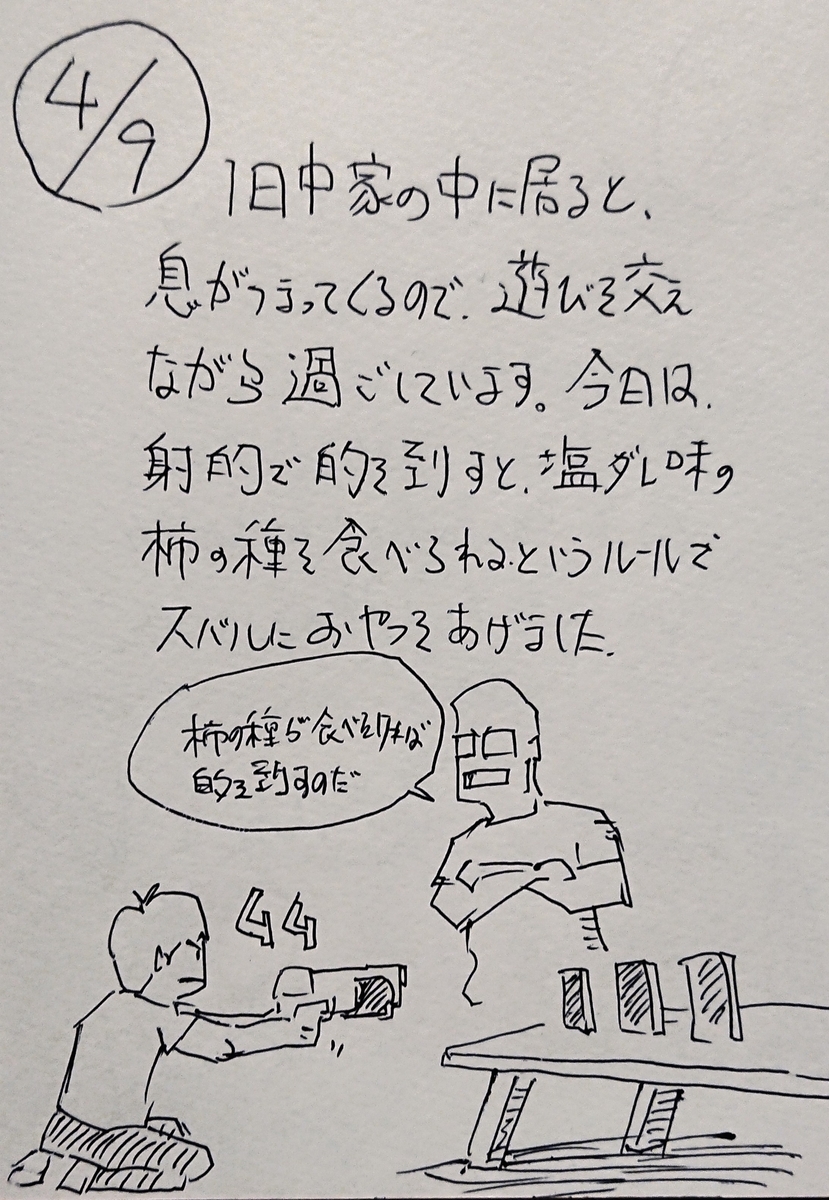 4/9
1日中家の中に居ると、
息がつまってくるので、遊びを交え
ながら過ごしています。今日は、
射的で的を到すと、塩ダレ味の
柿の種を食べられるというルールで
スバルにおやつをあげました。
柿の種が食べたければ
的を到すのだ